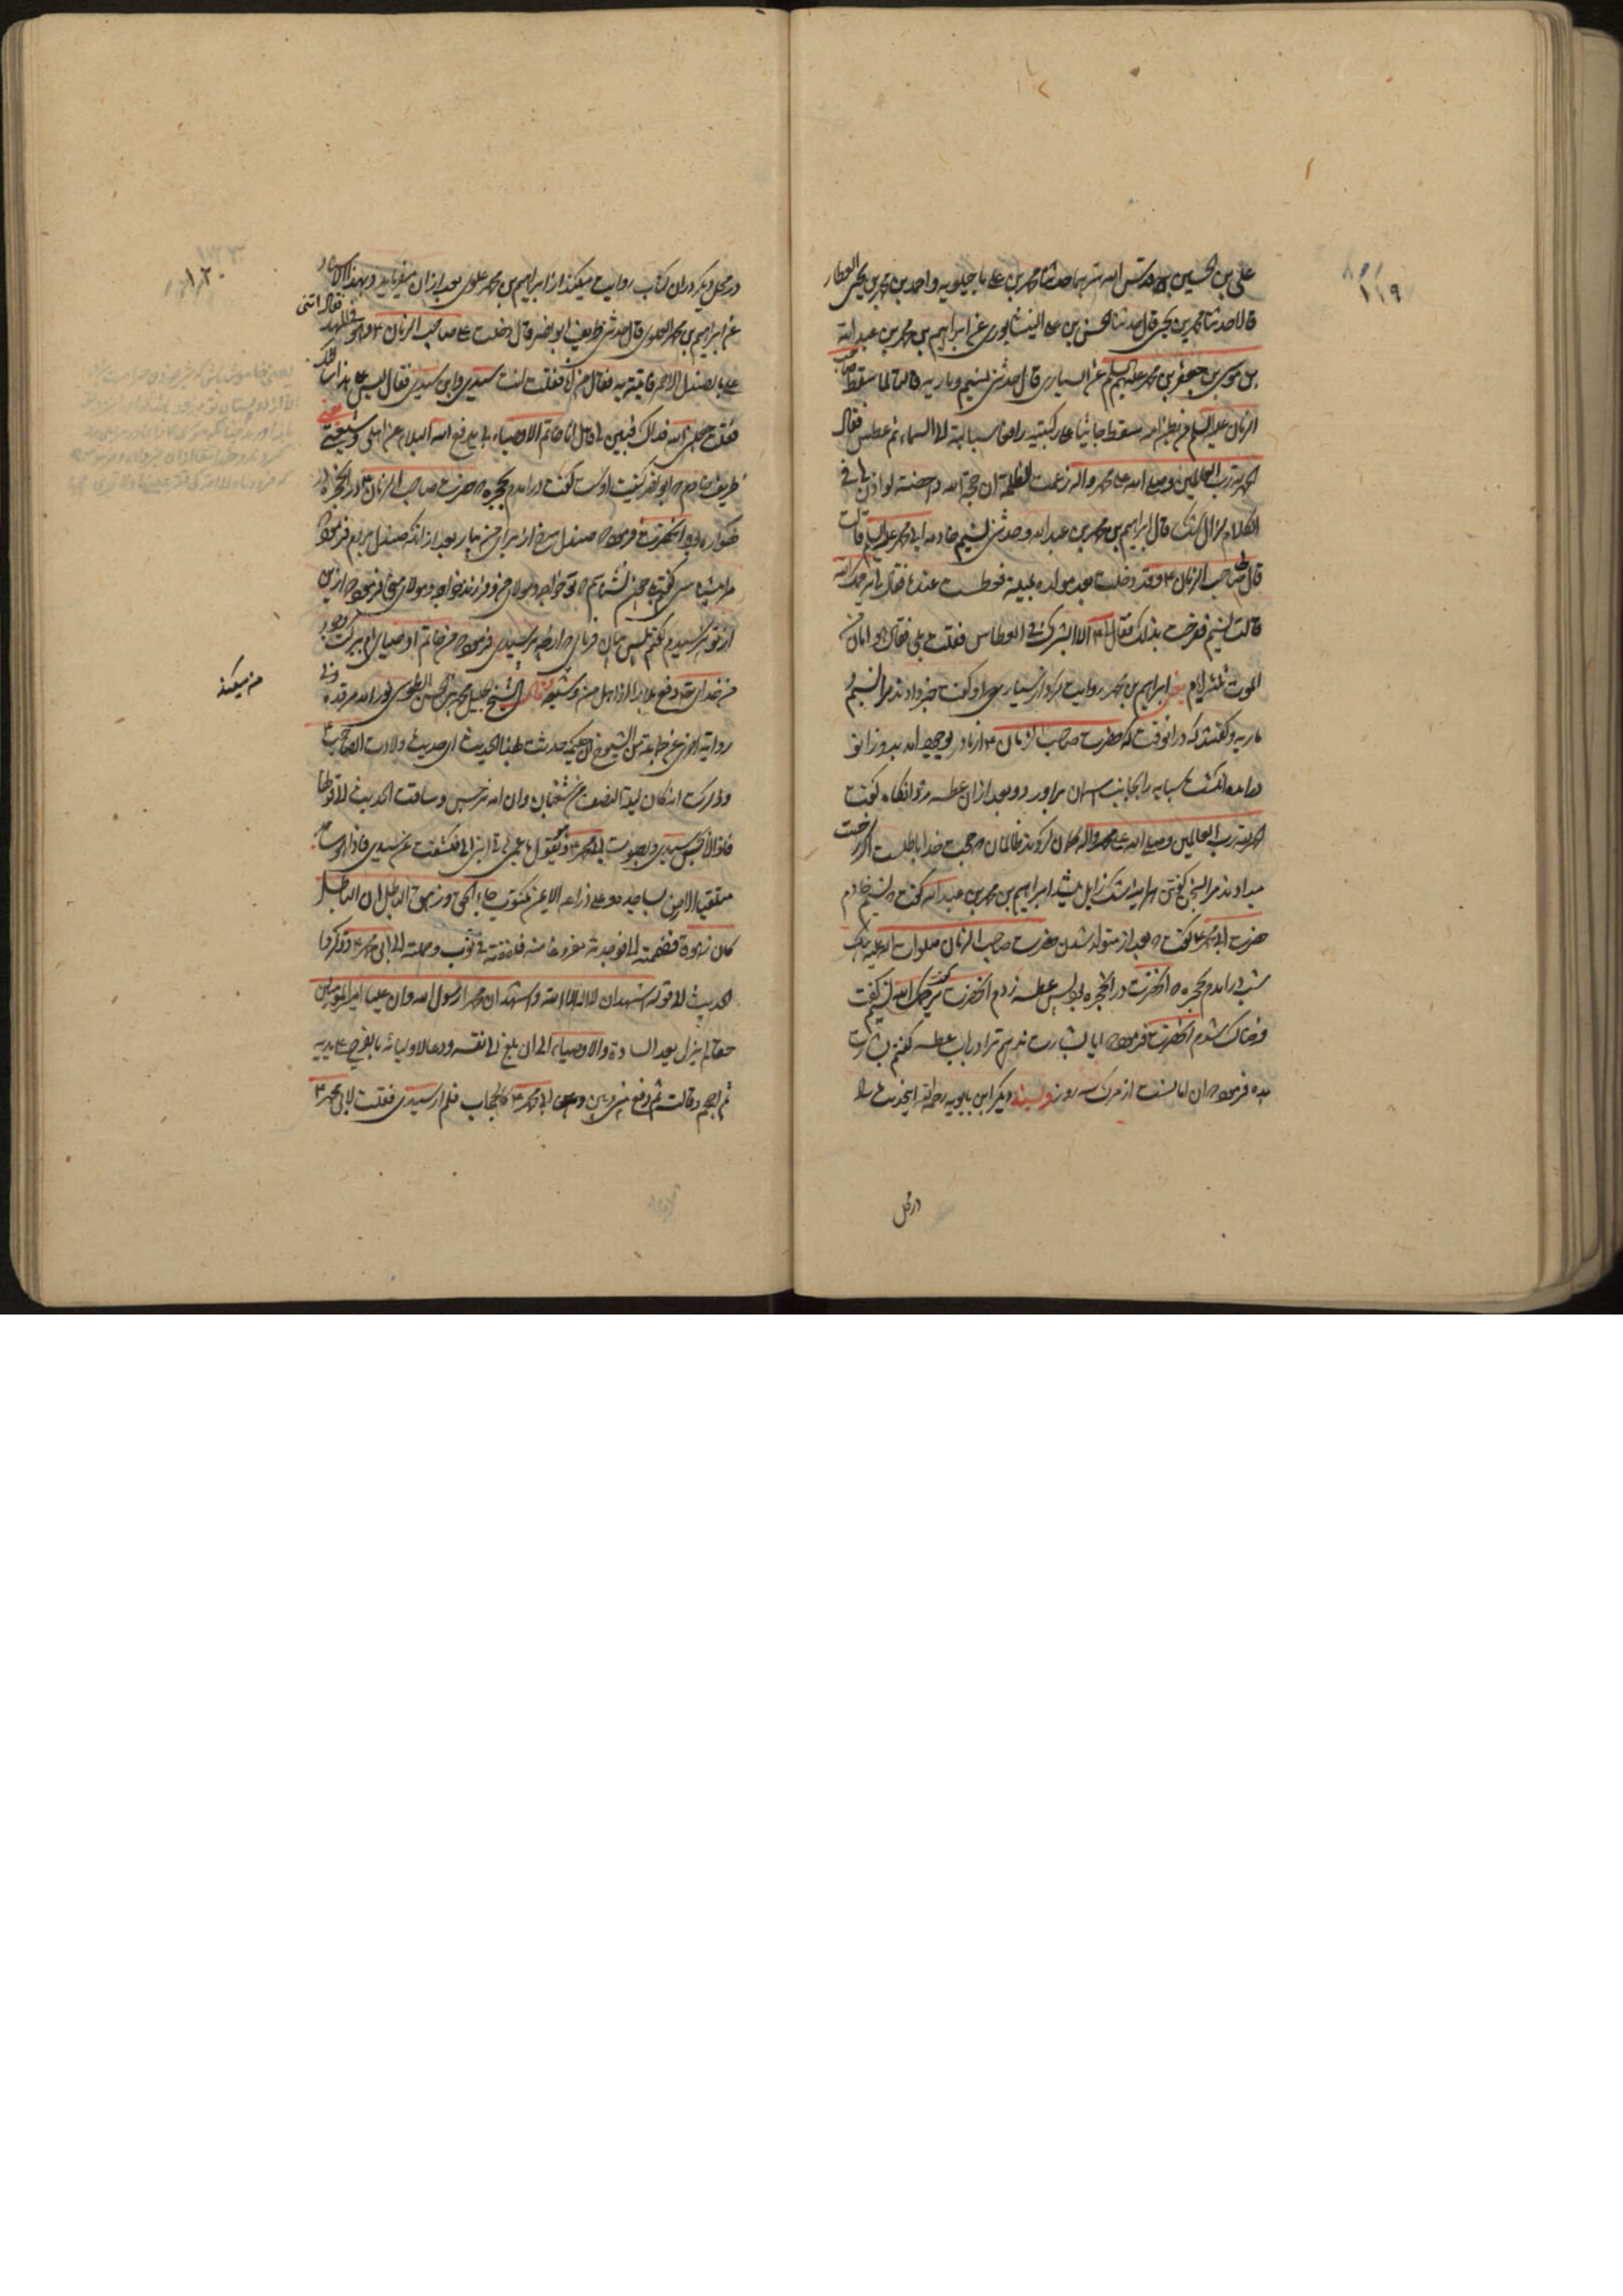 ١١٩
علی بن الحسین بن بابویه قدس الله سرهما حدثنا محمد بن علی ماجیلویه و احمد بن محمد بن یحیی العطار
قالا حدثنا محمد بن یحیی قال حدثنا الحسن بن علی النیشابوری عن ابراهیم بن محمد بن عبد الله
بن موسی بن جعفر بن محمد علیهم السلم عن السیاری قال حدثتنی نسیم و ماریه قالتا لما سقط صاحب
الزمان علیه السلم من بطن امه سقط جاثیا علی رکبتیه رافعا سبابتیه الا السماء ثم عطس فقال
الحمد لله رب العالمین و صلی الله علی محمد و اله زعمت الظلمة ان حجة الله داحضة لو اذن لنا فی
الکلام لزال الشک قال ابراهیم بن محمد بن عبد الله و حدثتنی نسیم خادمه ابی محمد علیه السلم قالت
قال صاحب الزمان ٤ و قد دخلت بعد مولده بلیلة فعطست عنده فقال لی یرحمک الله
قالت نسیم ففرحت بذلک فقال ٤ الا ابشرک فی العطاس فقلت بلی فقال هو امان من
الموت ثلثة ایام یعنی ابراهیم بن محمد روایت کرد از سیاری و او گفت خبر دادند مرا نسیم و
ماریه و گفتند که در انوقت که حضرت صاحب الزمان ٤ از مادر بوجود امد بدو زانو
درامده انگشت سبابه را بجانب اسمان براورد و بعد از ان عطسه زد و انگاه گفت
الحمد لله رب العالمین و صلی الله علی محمد و اله گمان کردند ظالمان که حجت خدا باطلست اگر رخصت
میدادند مرا بسخن گفتن هراینه شک زایل میشد ابراهیم بن محمد بن عبد الله گفت که نسیم خادم
حضرت ابی محمد ٤ گفت که بعد از متولد شدن حضرت صاحب الزمان صلوات الله علیه بیک
شب درامدم بحجره که انحضرت در انحجره بود پس عطسه زدم انحضرت گفت یرحمک الله نسیم گفت
فرحناک شدم انحضرت فرمود که ایا بشارت ندهم ترا در باب عطسه گفتم بشارت
بده فرمود که ان امانست از مرگ سه روز و شیخ دیگر ابن بابویه رحمه الله اینحدیث را
در محل
١٢٠
در محل دیگر در ان کتاب روایت میکند از ابراهیم بن محمد علوی بعد از ان میفرماید و بهذا الاسناد
عن ابراهیم بن محمد العلوی قال حدثنی طریف ابو نصر قال دخلت علی صاحب الزمان ٤ و هو فی المهد فقال ائتنی
علی بالصندل الاحمر فاتیته به فقال من انا فقلت انت سیدی و ابن سیدی فقال لیس عن هذا سالتک
فقلت جعلنی الله فداک فبین لی قال انا خاتم الاوصیاء بی یدفع الله البلاء عن اهلی و شیعتی یعنی
طریف خادم که ابو نصر کنیت اوست گفت درامدم بحجره که حضرت صاحب الزمان ٤ در انحجره در
گهواره بود انحضرت فرمود که صندل سرخ از برای من بیار بعد از انکه صندل بردم فرمود که
مرا میشناسی گفتم بلی میشناسم که تو خواجه و مولای من و فرزند خواجه و مولای منی فرمود که ازین
از تو نپرسیدم گفتم پس بیان فرمای که از چه پرسیدی فرمود که من خاتم اوصیای ام ببرکت وجود
من خدای تعالی دفع میکند بلا را از اهل من و شیعه من قال الشیخ الجلیل محمد بن الحسن الطوسی نور الله مرقده و فی
من میکند
روایة اخری عن جماعة من الشیوخ ان حکیمة حدثت بهذا الحدیث ای حدیث ولادت الصاحب ٤
و ذکرت انه کان لیلة النصف من شعبان و ان امه نرجس و ساقت الحدیث الا قولها
فاذا انا بحس سیدی و بصوت ابی محمد ٤ و هو یقول یا عمتی هاتی ابنی الی فکشفت عن سیدی فاذا هو ساجد
متلقیا الارض بمساجده و علی ذراعه الایمن مکتوب جاء الحق و زهق الباطل ان الباطل
کان زهوقا فضممته الی فوجدته مفروغا منه فلففته فی ثوب و حملته الی ابی محمد ٤ و ذکروا
الحدیث الا قوله اشهد ان لا اله الا الله و اشهد ان محمدا رسول الله و ان علیا امیر المؤمنین
حقا ثم لم یزل یعد السادة و الاوصیاء الی ان بلغ الی نفسه و دعا لاولیائه بالفرج علی یدیه
ثم احجم و قالت ثم رفع بینی و بین ابی محمد ٤ کالحجاب فلم ار سیدی فقلت لابی محمد ٤